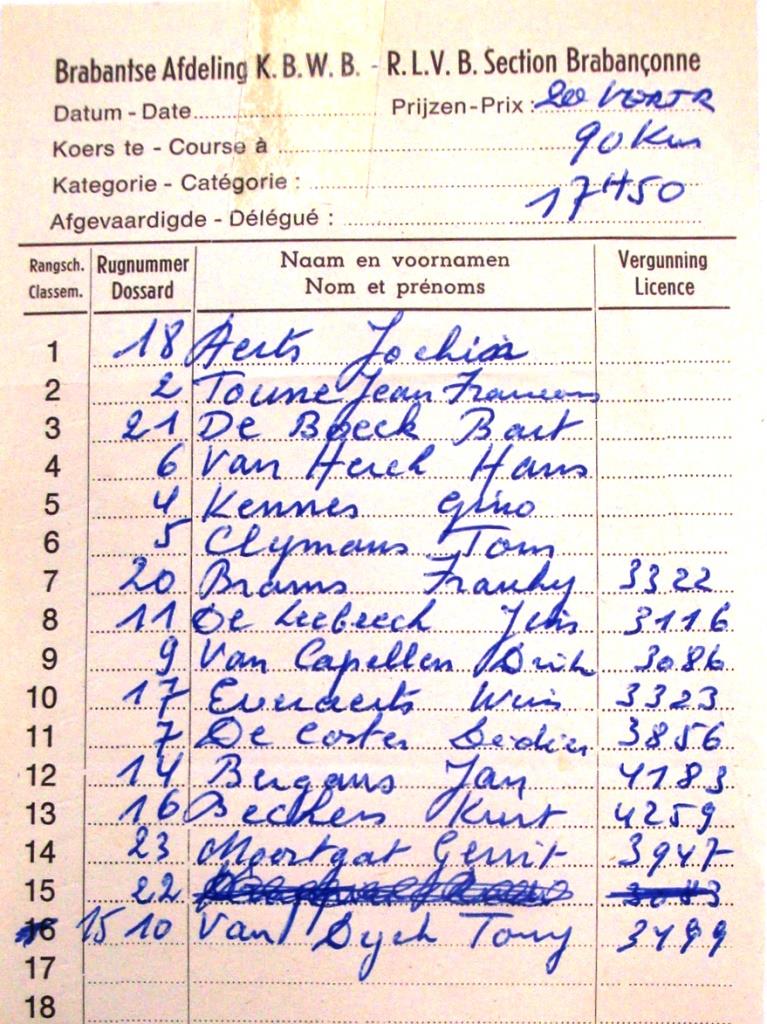 Brabantse Afdeling K.B.W.B. - R.L.V.B. Section Brabançonne
Datum - Date Prijzen-Prix : 20
Koers te - Course à 90 Km
Kategorie - Catégorie : 17H50
Afgevaardigde - Délégué :
Rangsch. Classem. Rugnummer Dossard Naam en voornamen Nom et prénoms Vergunning Licence
1 18 Aerts Jochim
2 2 Toune Jean Francois
3 21 De Boeck Bart
4 6 Van Herck Hans
5 4 Kennes Gino
6 5 Clymans Tom
7 20 Brams Franky 3322
8 11 De Leebeeck Jens 3116
9 9 Van Capellen Dirk 3086
10 17 Everaerts Wim 3323
11 7 De Coster Dedier 3856
12 14 Bergans Jan 4183
13 16 Beckers Kurt 4259
14 23 Moortgat Gerrit 3947
15 22
16 15 10 Van Dyck Tony 3499
17
18